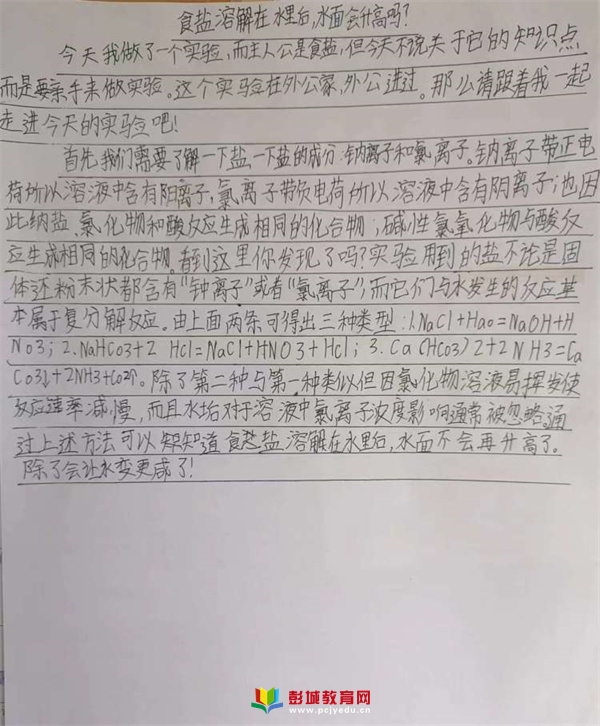 食盐溶解在水里后,水面会升高吗?
今天我做了一个实验,而主人公是食盐,但今天不说关于它的知识点
而是要亲手来做实验。这个实验在外公家,外公进过。那么请跟着我一起
走进今天的实验吧!
首先,我们需要了解一下盐,一下盐的成分:钠离子和氯离子。钠离子带正电
荷所以溶液中含有阳离子,氯离子带负电荷所以溶液中含有阴离子;也因
此纳盐、氯化物和酸反应生成相同的化合物;碱性氯氧化物与酸反
应生成相同的化合物。看到这里你发现了吗?实验用到的盐不论是固
体还粉末状都含有“钟离子”或者“氯离子”,而它们与水发生的反应基
本属于复分解反应。由上面两条可得出三种类型:1.NaCl+Hao=NaOH+H
No3;2.NaHCo3+2 HCl=NaCl+HNO3+Hcl;3.Ca(HCo3)2+2NH3=Ca
Co3↓+2NH3+Co2↑。除了第二种与第一种类似但因氯化物溶液易挥发使
反应速率减慢,而且水垢对于溶液中氯离子浓度影响通常被忽略。通
过上述方法可以知道食盐溶解在水里后,水面不会再升高了。
除了会让水变更咸了!
彭城教育网
www.pcjyedu.cn